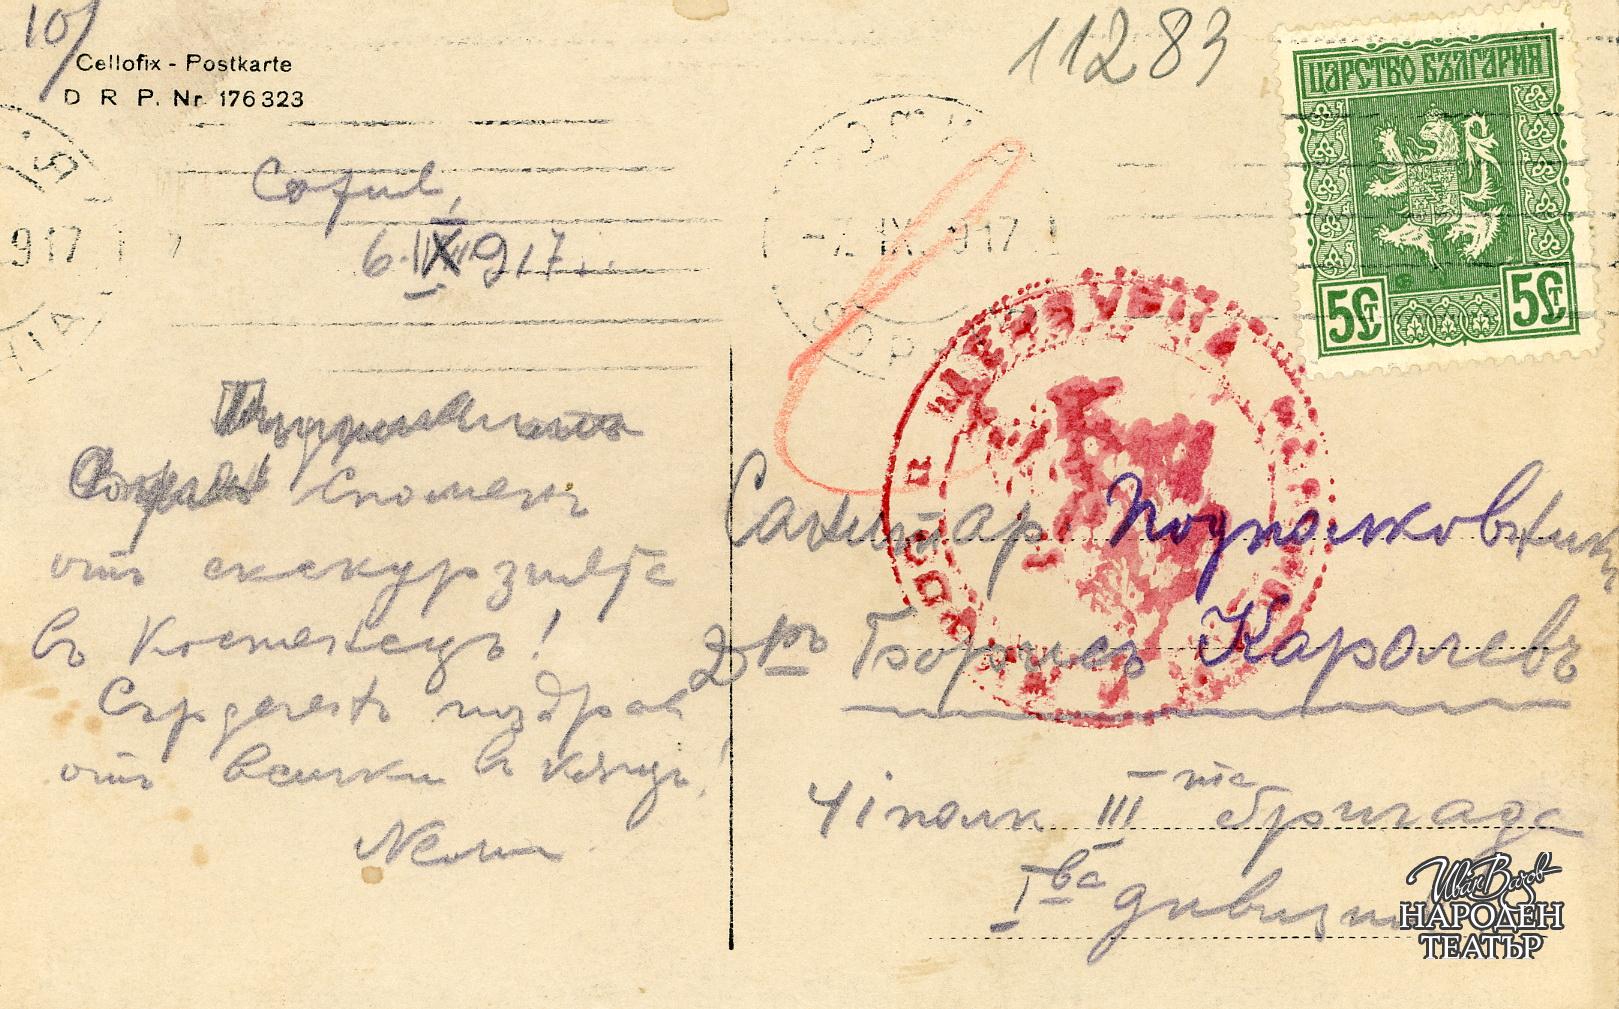 10/
Cellofix - Postkarte
D R P. Nr. 176323
11283
ЦАРСТВО БЪЛГАРИЯ
5 СТ 5 СТ
6. IX 917
-7. IX. 917
917
Споменъ
отъ екскурзията
въ Костенецъ!
Сърдеченъ поздрав
отъ всички въ
Санитар. Подполковникъ
Д-ръ Георгиев Каролевъ
41 полк III та бригада
I ва дивизия
Иван Вазов
НАРОДЕН
ТЕАТЪР